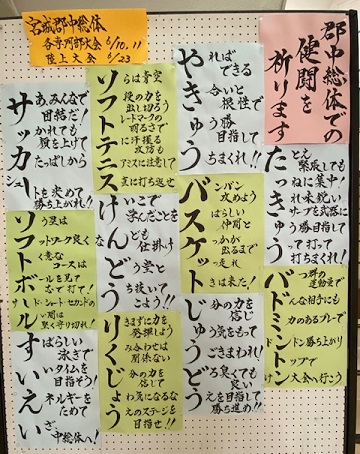 宮城郡中総体
各専門部大会 6/10.11
陸上大会 6/23
郡中総体での
健闘を
祈ります
たっきゅう
緊張しても
ねに集中!
れ味鋭い
サーブを武器に
う勝目指して
って打って
打ちまくれ!
バドミントン
つ群の
運動量で
んな相手にも
力のあるプレーで
ドン勝ち上がり
トップで
け大会へ行こう
やきゅう
ればできる
合いと根性で
う勝
目指して
ちまくれ!!
バスケット
ンバン
攻めよう
ばらしい
仲間と
っかが
出るまで
っ走れ
きは来た!
じゅうどう
分の力を
信じて
う気をもって
ごきまわれ!
良い
えを目指して
勝ち進め!!
ソフトテニス
らは青空
段の力を
出し切ろう
レードマークの
明るさで
に汗握る
攻防も
アミスに注意して
直に打ち返せ
けんどう
いこで
学んだことを
ども仕掛け
う堂と
ち抜いて
こよう!!
りくじょう
きまずに力を
発揮しよう
み合わせは
関係ない
分の力を
信じて
わ気になるな
えのステージを
目指せ!!
サッカー
あ、みんなで
団結だ!
かれても
顔を上げて
たっぱしから
シュートを決めて
勝ち上がれ!!
ソフトボール
う塁は
ットワーク良く
く意な
コースは
ールを見て
んで打て!
ド・ショート・セカンドの
間は
堅く守り切れ!
すいえい
ばらしい
泳ぎで
いタイムを
目指そう!
ネルギーを
ためて
ざ、中総体へ!